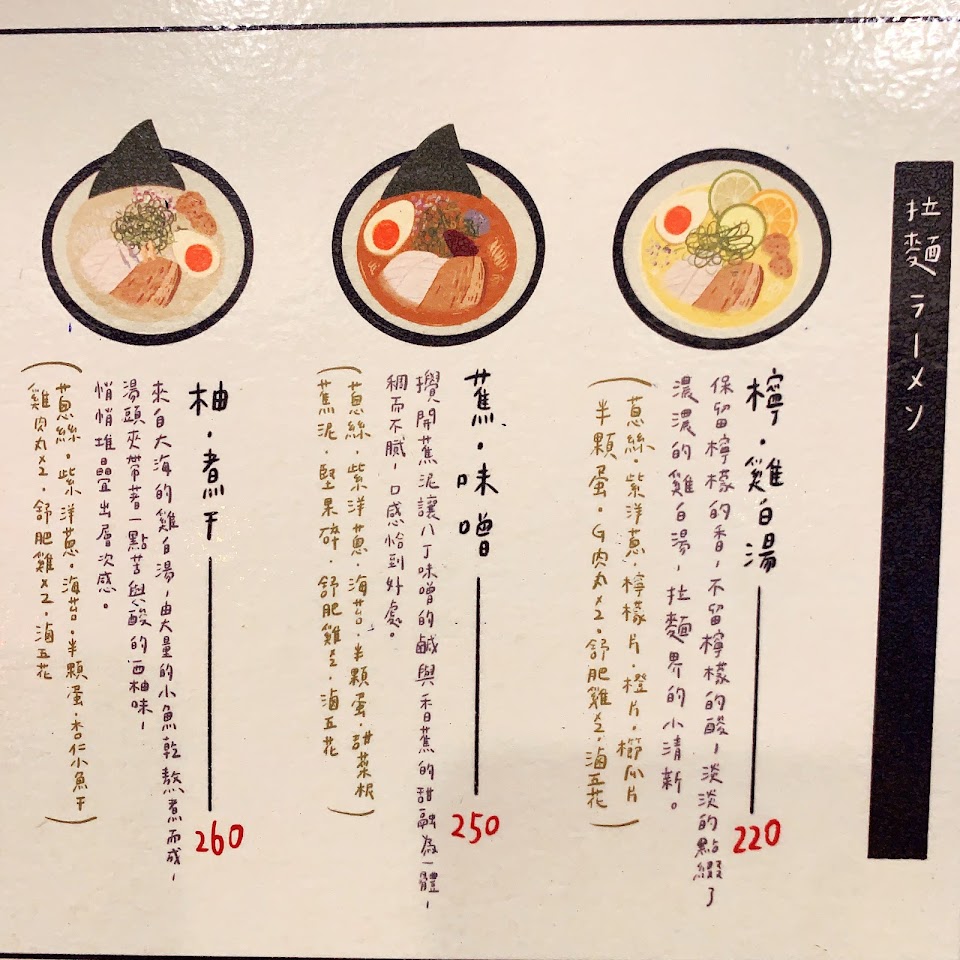 拉麵 ラーメン
檸・雞白湯
220
保留檸檬的香,不留檸檬的酸,淡淡的點綴了
濃濃的雞白湯,拉麵界的小清新。
(蔥絲・紫洋蔥・檸檬片・橙片・櫛瓜片
半顆蛋・G肉丸×2・舒肥雞×2・滷五花)
蕉・味噌
250
攪開蕉泥讓八丁味噌的鹹與香蕉的甜融為一體,
稠而不膩,口感恰到好處。
(蔥絲・紫洋蔥・海苔・半顆蛋・甜菜根
蕉泥・堅果碎・舒肥雞×2・滷五花)
柚・煮干
260
來自大海的雞白湯,由大量的小魚乾熬煮而成,
湯頭夾帶著一點苦與酸的西柚味,
悄悄堆疊出層次感。
(蔥絲・紫洋蔥・海苔・半顆蛋・杏仁小魚干
雞肉丸×2・舒肥雞×2・滷五花)